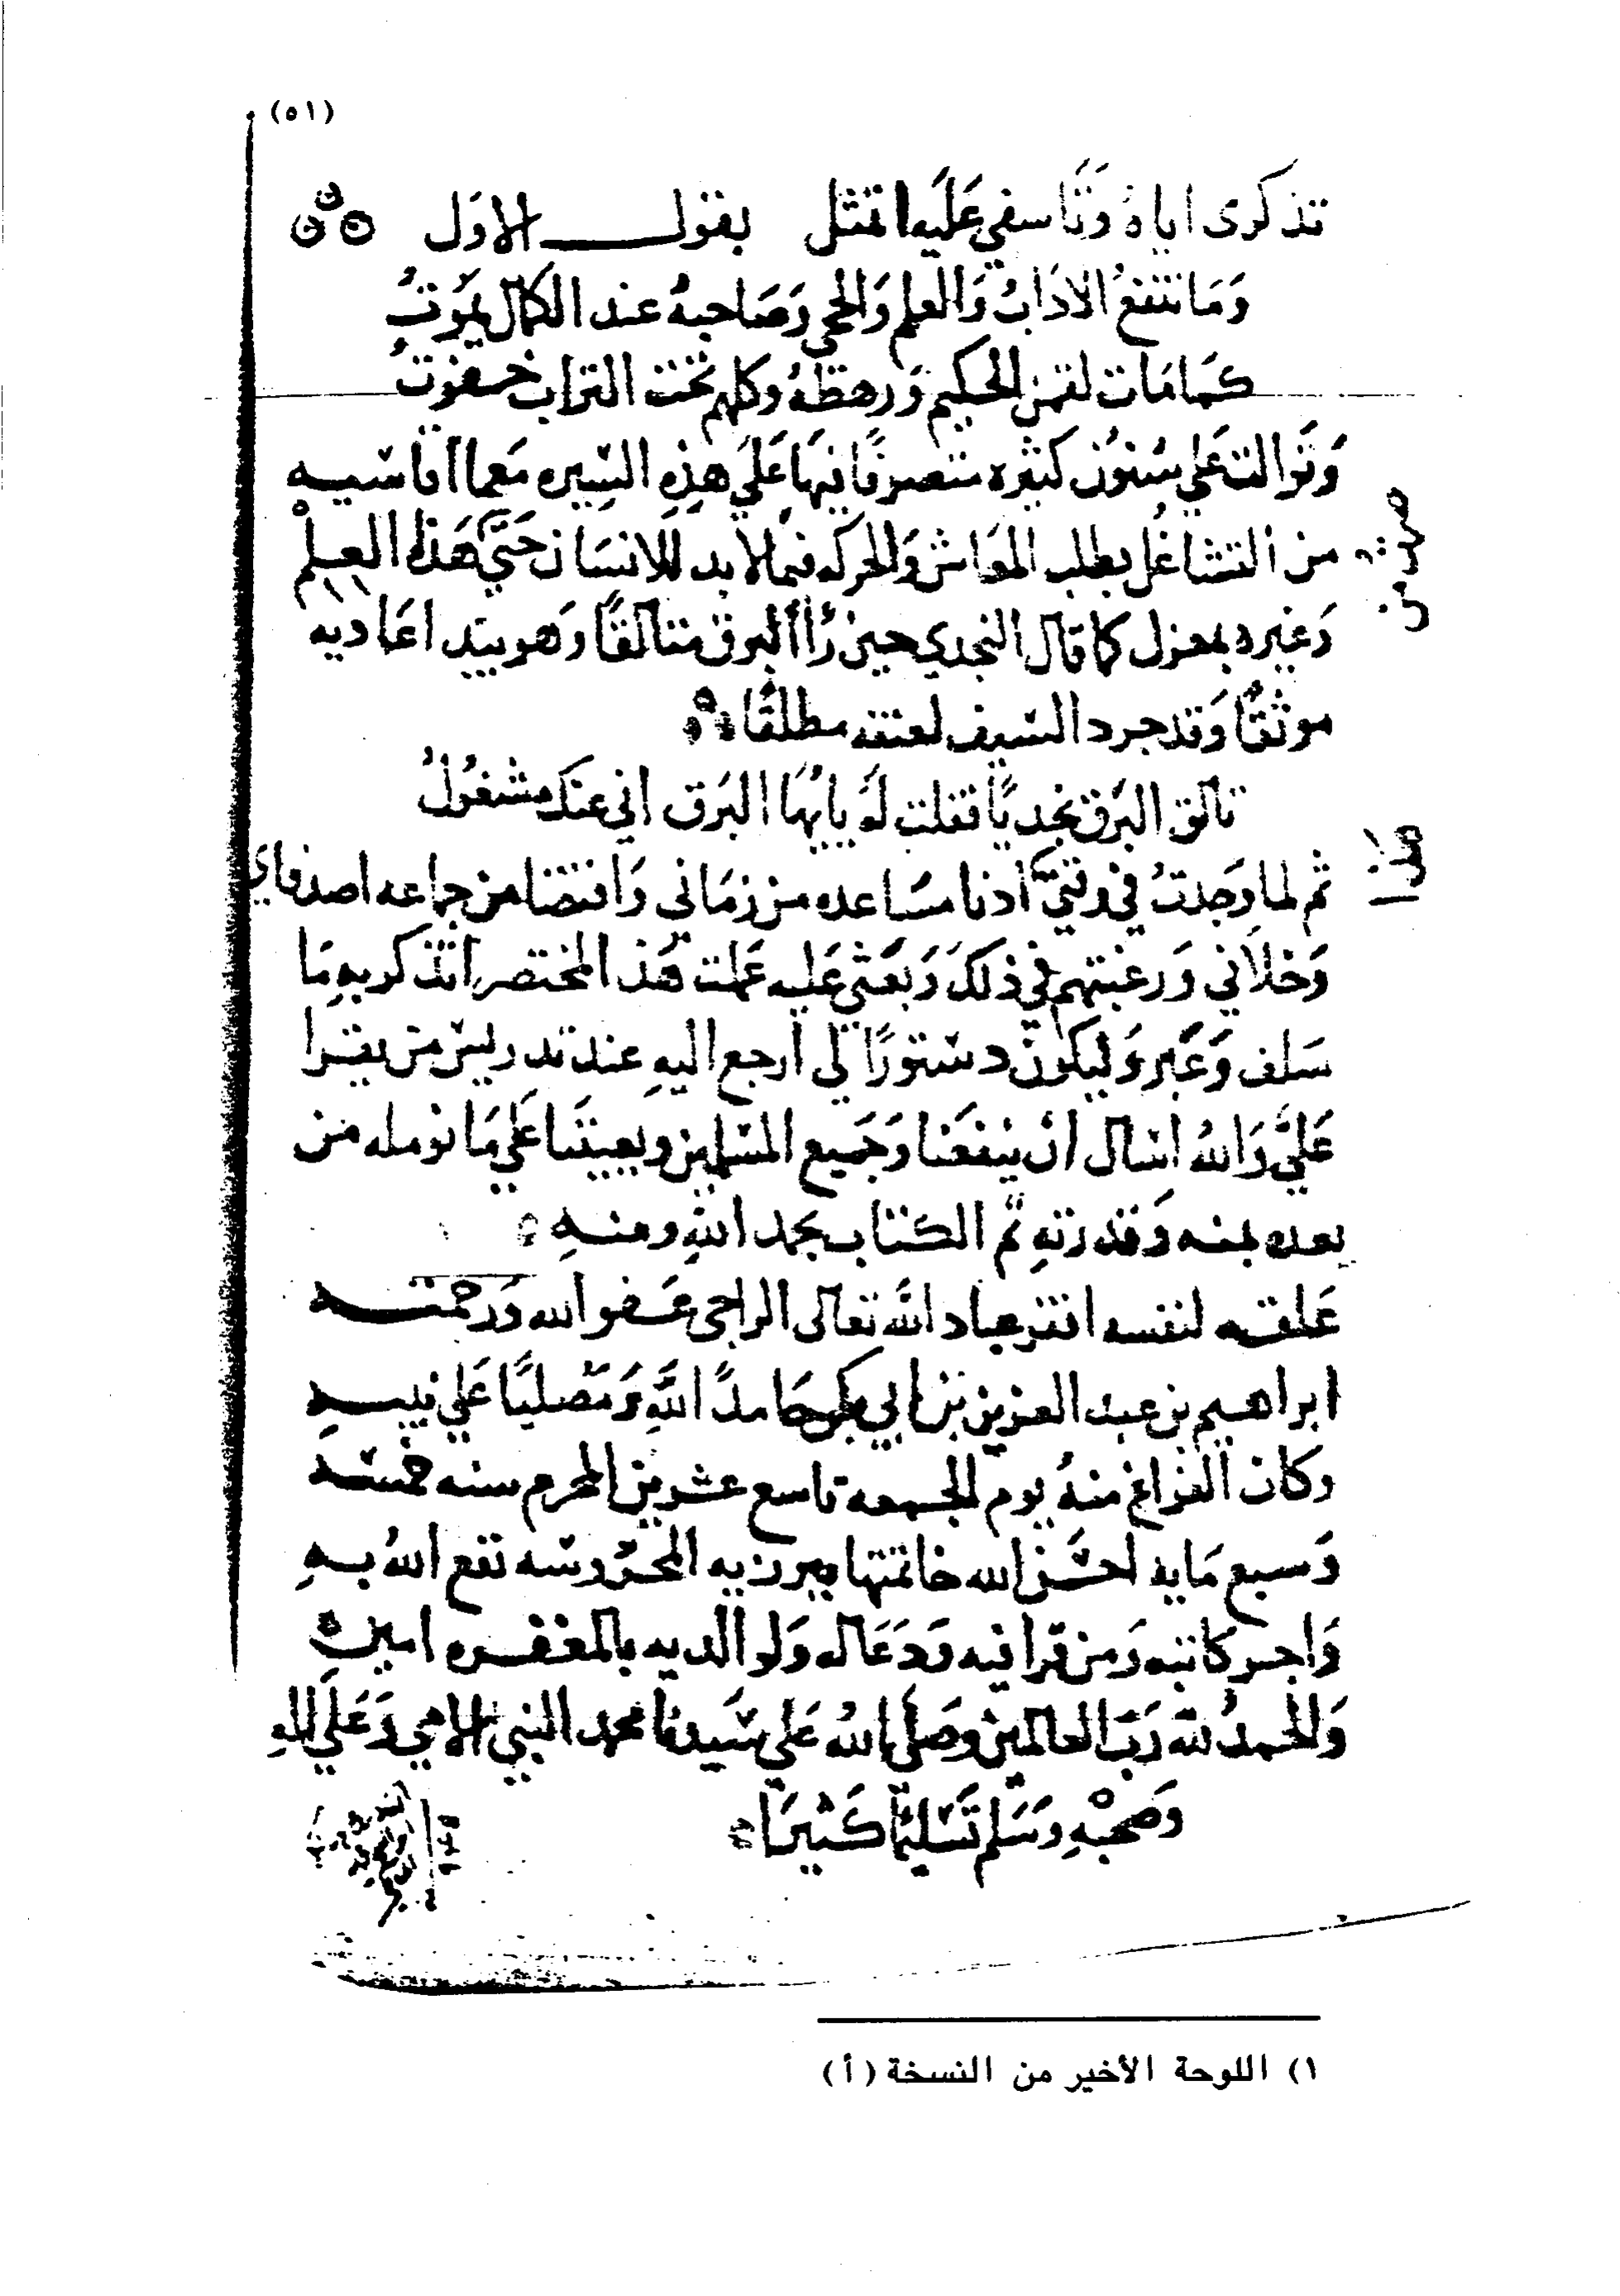 (٥١)
تذكرى اياهُ وَتَأسفي عَلَيه اتمثل بقول الاوَل
وَمَا تنفعُ الآدَابُ وَالعلم وَالحجى وَصَاحبهُ عند الكمال يَمُوتُ
كمَا مَات لقمن الحكيم وَرهطهُ وكلهم تحت التراب خفوتُ
وَتَوالت عَلي سُنون كثيره متصرفًا فيهَا عَليَ هذِهِ السّيره مَعما اقاسيه
من التشاغُل بطلب المعَاش وَالحركه فيمَا لا بد للانسَان حَتيَّ هَذا العِلمْ
وَغيره بمعزل كما قال النجدي حين رُأا البرق متالقًا وَهو بيَد اعَاديه
موثقًا وَقد جرد السّيف لعنقه مطلقًا
تالق البَرق نجديًا فقلت لهُ يايُهَا البَرق اني عنك مشغُولُ
ثم لما وَجدتُ في وقتيَّ ادنا مسَاعده من زمَاني وَاقتضا من جماعه اصدقاي
وَخلاني وَرغبتهم في ذلكَ وَبَعثي عَليه عَملت هَذا المختصر اتذكر بهِ مَا
سَلف وَغَبر وَليكون دسّتورًا لي ارجع اليهِ عند تدريسّ من يقرا
عَليَّ وَاللهُ اسّال ان ينفعَنا وَجَميع المسّلمين ويعيننَا عَلي مَا نومله من
بعده بمنه وَقدرتهِ تم الكتاب بحمد اللهِ ومنهِ
عَلقه لنفسه افقر عباد اللَّه تعَالى الراجى عَفو الله وَرحمته
ابراهيم بن عبد العزيز بن ابي بكر حَامدًا للَّهِ وَمُصليًا عَلي نبيهِ
وكان الفراغ منهُ يوم الجمعه تاسع عشرين المحرم سنه خمسّه
وَسبع مَايه احسَّن الله خاتمتها ... المحرُوسّه نفع اللهُ بهِ
وَاجر كاتبه وَمن قرا فيه وَدَعَا له وَلوالديه بالمغفره امين
وَالحمدُ للَّه رَبّ العَالمين وصَلي اللهُ عَلي سّيدنا محمد النبي الامي وَعَلي الهِ
وَصحْبهِ وَسَلم تَسّليمًا كَثيرَا
١) اللوحة الأخير من النسخة (أ)